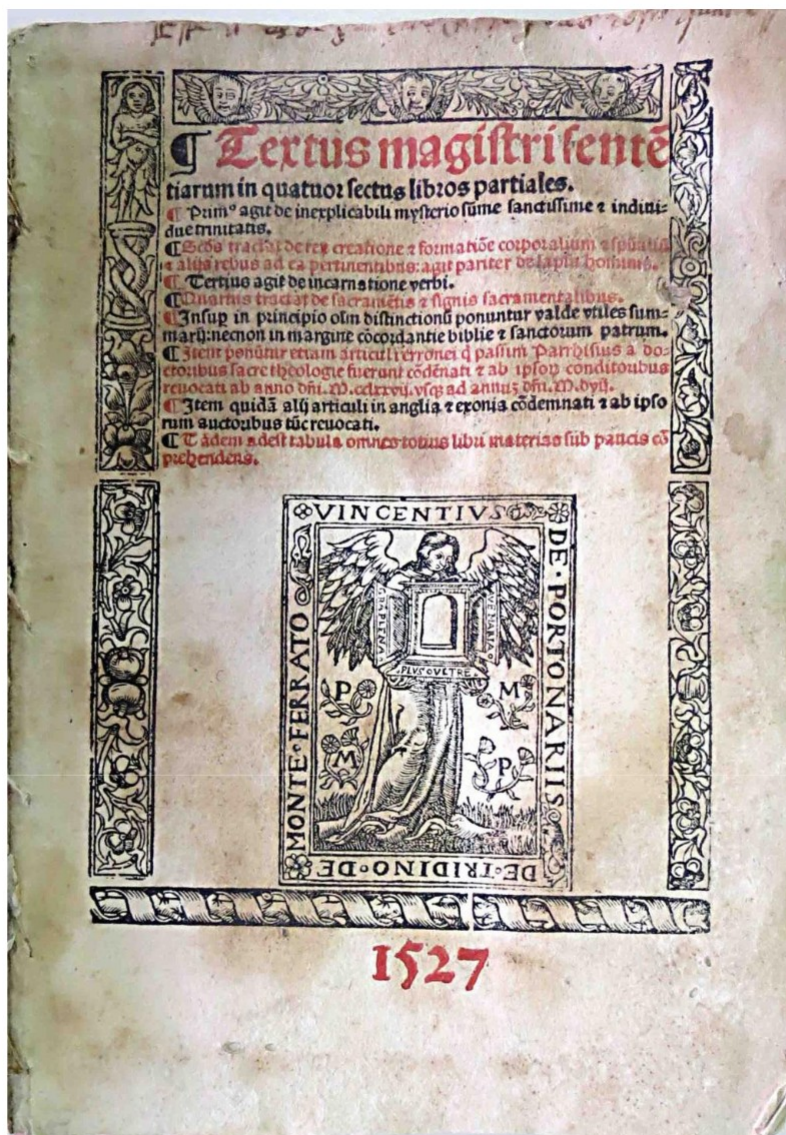 ¶ Textus magistri sentē
tiarum in quatuor sectus libros partiales.
¶ Primº agit de inexplicabili mysterio sūme sanctissime ⁊ indiui-
due trinitatis.
¶ Scd̄s tractat de creatione ⁊ formatiōe corporalium ⁊ spūaliū
⁊ alijs rebus ad ea pertinentibus: agit pariter de lapsu hominis.
¶ Tertius agit de incarnatione verbi.
¶ Quartus tractat de sacramētis ⁊ signis sacramentalibus.
¶ Insup in principio distinctionū ponuntur valde vtiles sum-
marij: necnon in margine cōcordantie biblie ⁊ sanctorum patrum.
¶ Item ponūtur etiam articuli erronei q̄ passim Parrhisius a do-
ctoribus sacre theologie fuerunt cōdēnati ⁊ ab ipsoꝝ conditoribus
reuocati ab anno dn̄i. M. cclxxvij. vsqꝫ ad annuꝫ dn̄i. M. dvij.
¶ Item quidā alij articuli in anglia ⁊ exonia cōdemnati ⁊ ab ipso
rum auctoribus tūc reuocati.
¶ Tādem adest tabula omnes totius libri materias sub paucis cō
prehendens.
VINCENTIVS
DE·PORTONARIIS
DE·TRIDINO·DE·
MONTE·FERRATO
GRAPLENA
AVEMARIA
PLVSOVLTRE
P M
M P
1527